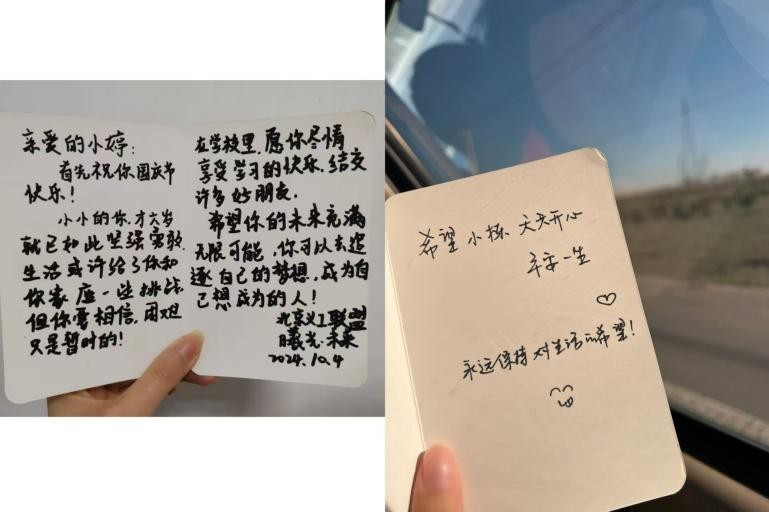 亲爱的小婷：
首先祝你国庆节
快乐！
小小的你，才六岁
就已如此坚强勇敢
生活或许给了你和
你家庭一些挑战
但你要相信，困难
只是暂时的！
在学校里，愿你尽情
享受学习的快乐，结交
许多好朋友，
希望你的未来充满
无限可能，你可以去追
逐自己的梦想，成为自
己想成为的人！
北京义工联盟
曦光·未来
2024.10.4
希望小栋天天开心
平安一生
永远保持对生活的希望！